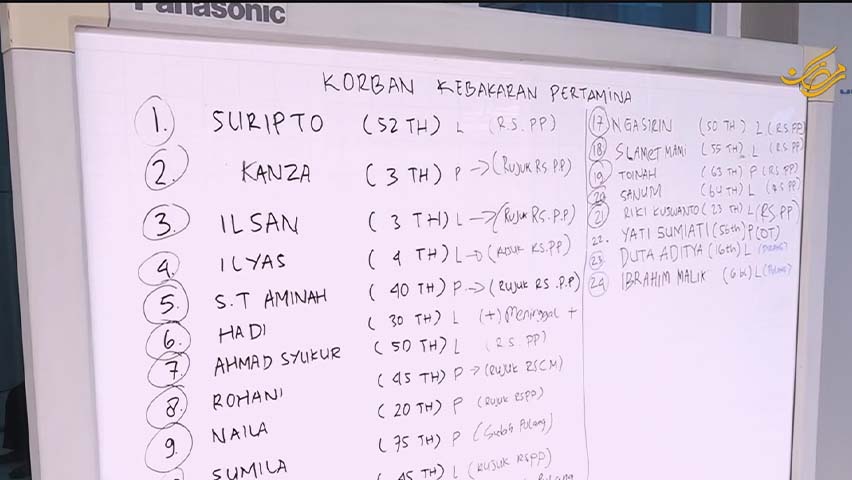 Panasonic
KORBAN KEBAKARAN PERTAMINA
1. SURIPTO (52 TH) L (R.S. PP)
2. KANZA (3 TH) P → (RUJUK RS.P.P)
3. ILSAN (3 TH) L → (RUJUK RS.P.P)
4. ILYAS (4 TH) L → (RUJUK RS.PP)
5. S.T AMINAH (40 TH) P → (RUJUK RS.P.P)
6. HADI (30 TH) L (+) Meninggal +
7. AHMAD SYUKUR (50 TH) L (RS. PP)
8. ROHANI (45 TH) P → (RUJUK RSCM)
9. NAILA (20 TH) P (RUJUK RSPP)
SUMILA (75 TH) P (Sudah Pulang)
(45 TH) L (RUJUK RSPP)
Pulang
17 NGASIRIN (50 TH) L (RS.PP)
18 SLAMET MAMI (55 TH) L (RS.PP)
19 TOINAH (63 TH) P (RS.PP)
20 SANUM (64 TH) L (RS PP)
21 RIKI KUSWANTO (23 TH) L (RS PP)
22. YATI SUMIATI (56th) P (OT)
23 DUTA ADITYA (16th) L
24 IBRAHIM MALIK (6 bl) L (Pulang)